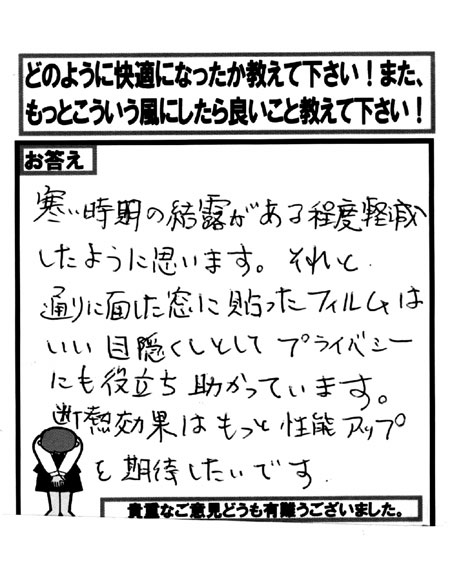 どのように快適になったか教えて下さい！また、
もっとこういう風にしたら良いこと教えて下さい！
お答え
寒い時期の結露がある程度軽減
したように思います。それと
通りに面した窓に貼ったフィルムは
いい目隠くしとしてプライバシー
にも役立ち助かっています。
断熱効果はもっと性能アップ
を期待したいです.
貴重なご意見どうも有難うございました。